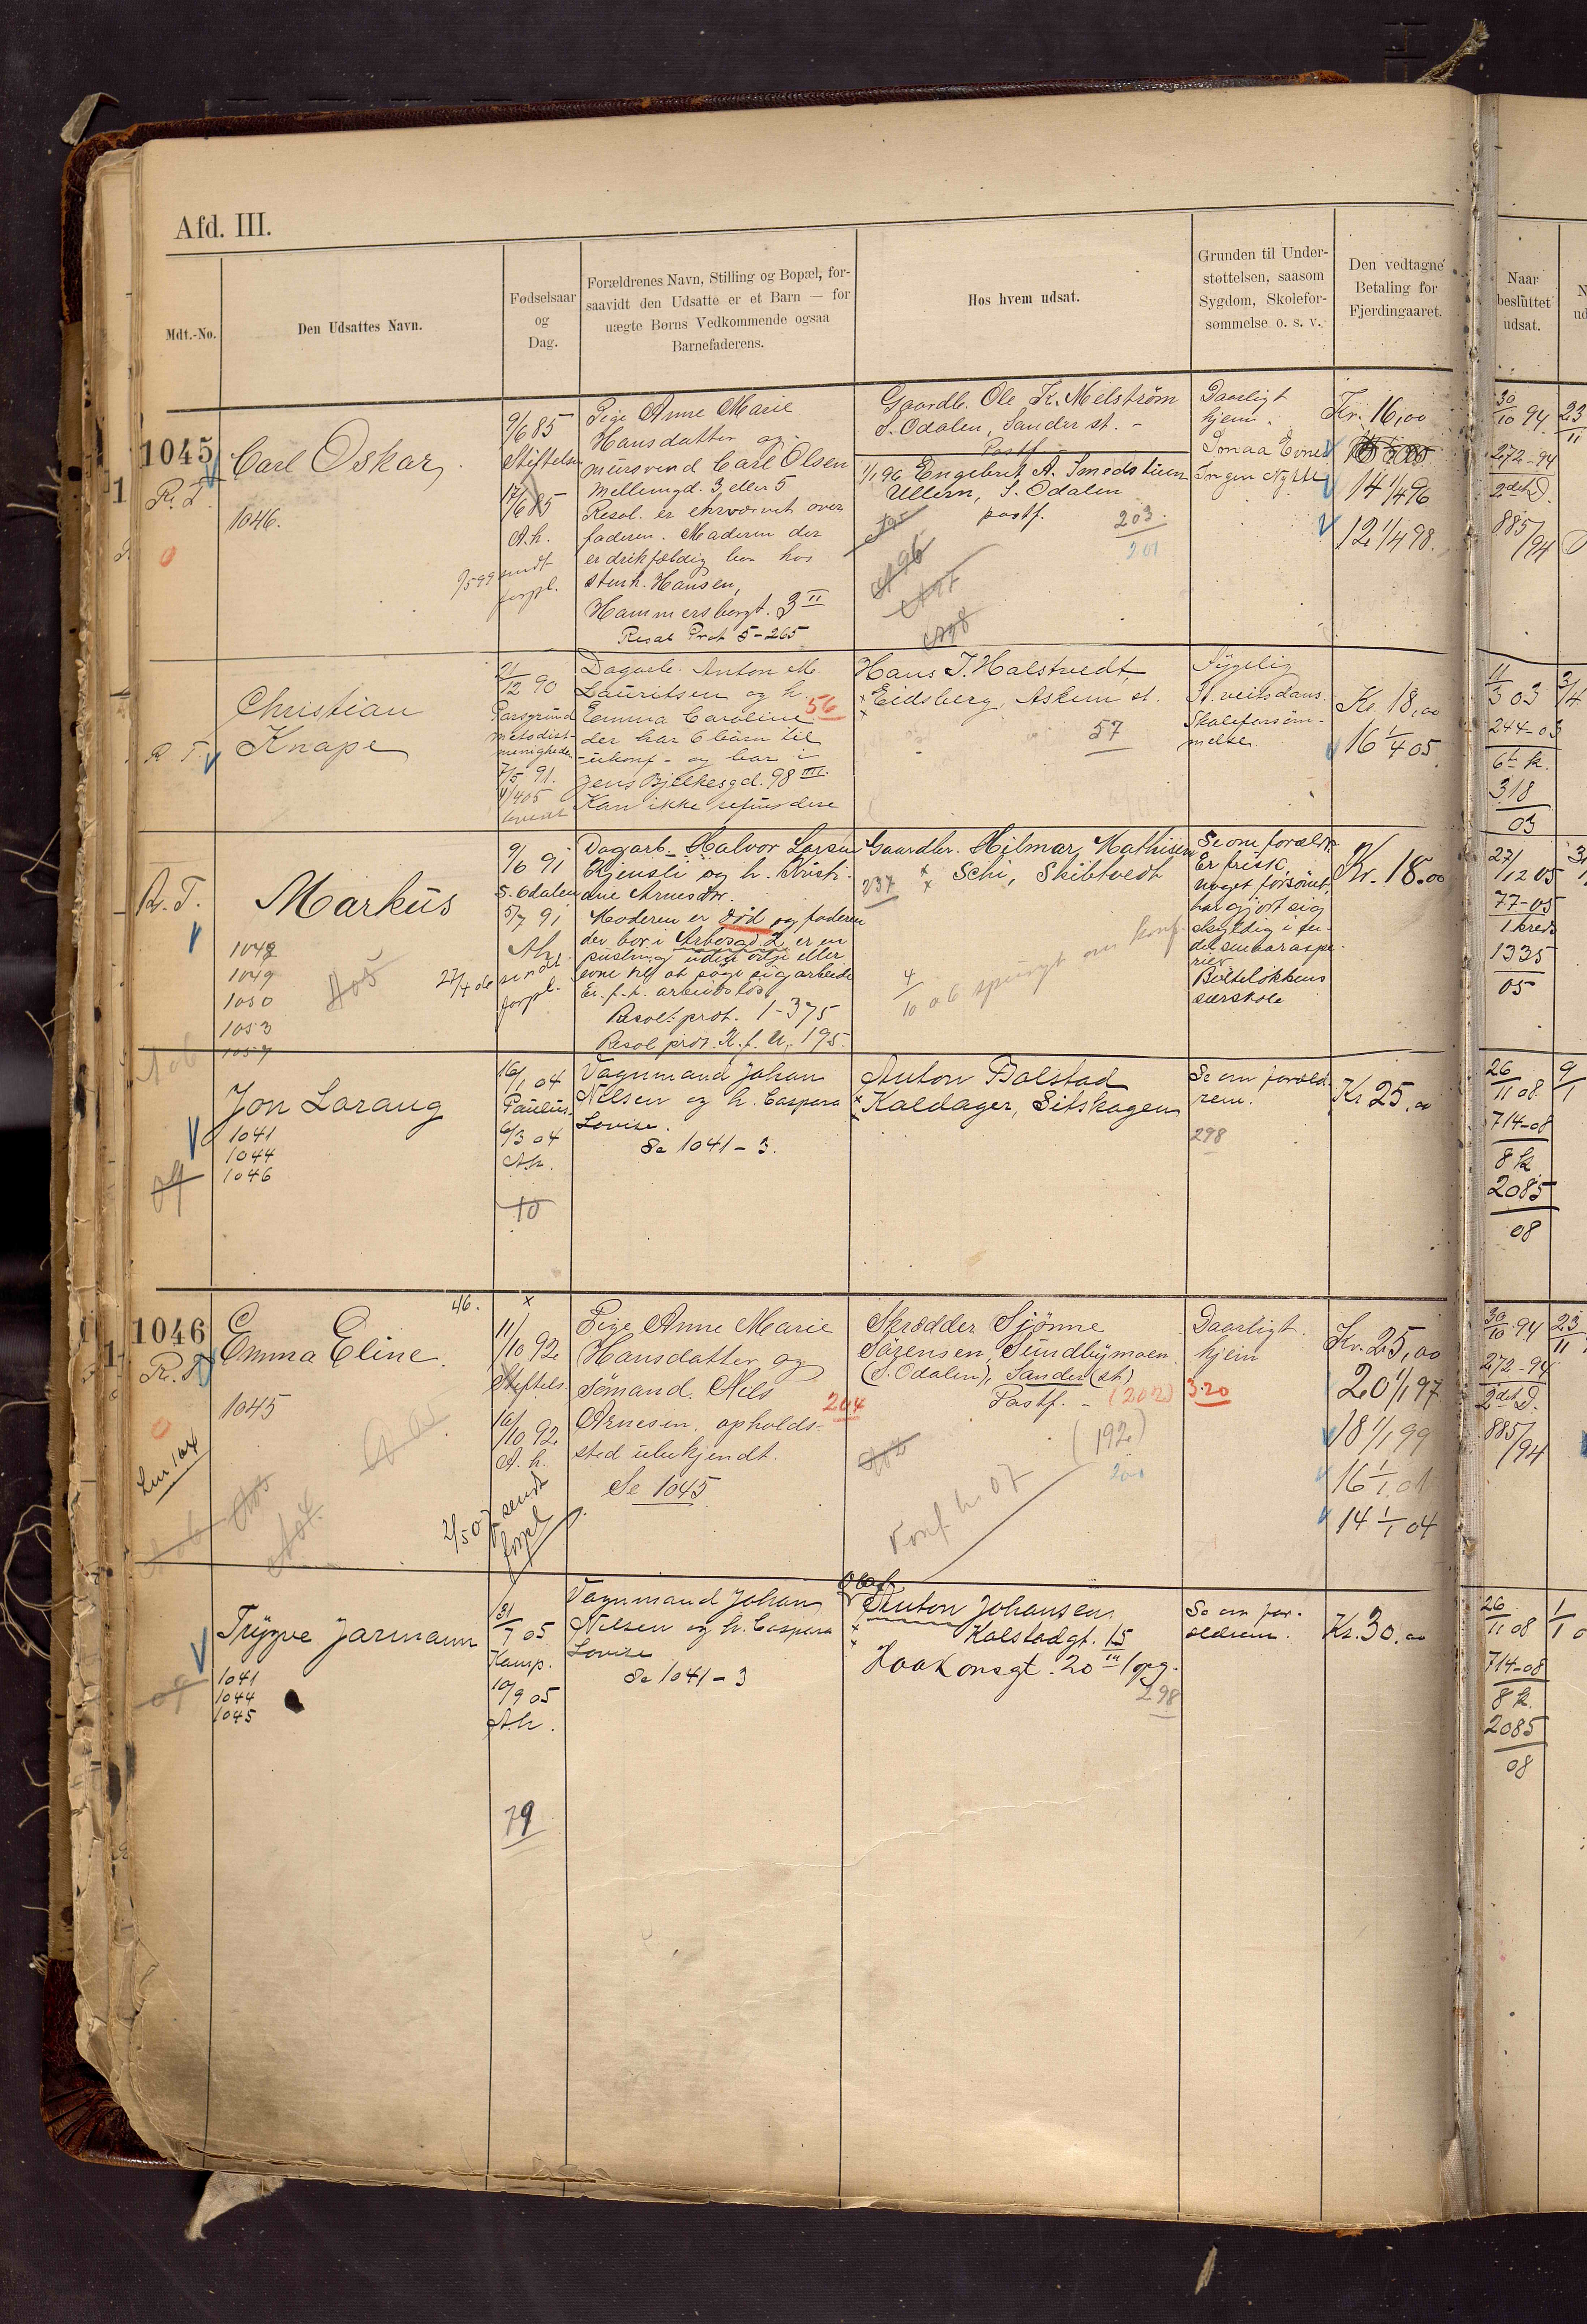 Afd. III.
Mdt.-No.
Den Udsattes Navn.
Fødselsaar
og
Dag.
Forældrenes Navn, Stilling og Bopæl, for-
saavidt den Udsatte er et Barn — for
uægte Børns Vedkommende ogsaa
Barnefaderens.
Hos hvem udsat.
Grunden til Under-
støttelsen, saasom
Sygdom, Skolefor-
sømmelse o. s. v.
Den vedtagne
Betaling for
Fjerdingaaret.
Naar
besluttet
udsat.
1045
R. T.
0
Carl Oskar
1046.
9/6 85
Stiftelsen
17/6 85
A. h.
9/5 99 sendt
forpl.
Pige Anne Marie
Hansdatter og
mursvend Carl Olsen
Mellemgd. 3 eller 5
Resol. er ehrvervet over
faderen. Moderen der
er drikfældig bor hos
stenh. Hansen,
Hammersborgt. 3 II
Resol Prot 5-265
Gaardbr. Ole K. Melström
S. Odalen, Sander st. -
Postf.
1/1 96 Engebret A. Smedstuen
Ullern, S. Odalen
postf.
203.
201
A 96
A 97
A 98
Daarligt
hjem.
Smaa Evner
Ingen Nytte
Kr. 16,00
14 1/4 96
12 1/4 98.
30/10 94
272-94
2det D.
885/94
23/11
R. T.
Christian
Knape
9/12 90
metodist-
menigheden
7/5 91.
4/4 05
Dagarb. Anton M.
Lauritsen og h.
Emma Caroline
56
der har 6 börn til
-ukonf- og bor i
Jens Bjelkesgd. 98 III.
Kan ikke refundere
Hans J. Halstvedt,
Eidsberg, Askim st.
57
Sygelig
St. veits Dans.
Skoleforsöm-
melse
Kr. 18,00
16 1/4 05.
11/3 03
244-03
6te k.
318
03
R. T.
Markus
1048
1049
1050
1053
1057
A 05
A 06
9/6 91
S. Odalen
5/7 91
Ah.
27/4 06 sendt
forpl.
Dagarb. Halvor Larsen
Bjensli og h. Kristi-
ane Arnesdtr.
Moderen er död og faderen
der bor i Arbosgd. 2 er en
pusling uden vilje eller
evne til at søge sig arbeide
Er f. t. arbeidslös
Resol. prot. 1-375
Resol prot. K. f. U. 195.
Gaardbr. Hilmar Mathisen
237
Schi, Skibtvedt
4/10 06 spurgt om konf.
Se om foræld.
Er frisk,
noget forsömt,
har gjort sig
skyldig i en-
del
Bölelökkens
særskole
Kr. 18.00
27/12 05
77-05
1 kreds
1335
05
Jon Laraug
1041
1044
1046
16/1 04
Paulus.
6/3 04
A.h.
10
Vognmand Johan
Nilsen og h. Caspara
Lovise.
Se 1041 - 3.
Anton Bolstad
Kaldager, Sitskogen
Se om foræld-
rene.
298
Kr 25,00
26/11 08
714-08
8 k
2085
08
9/1
1046
R. T.
0
Emma Eline.
46.
1045
11/10 92
Stiftels.
16/10 92
A. h.
2/5 07 sendt
forpl
Pige Anne Marie
Hansdatter og
sømand. Nils
204
Arnesen, opholds-
sted ubekjendt.
Se 1045
Skrædder Sjönne
Sørensen, Sundbymoen
(S. Odalen), Sander (st)
Postf. - (202)
(192)
200
Konf. h. 07
Daarligt
hjem
320
Kr. 25,00
20 1/1 97
18 1/1 99
16 1/1 01
14 1/1 04
30/10 94
272-94
2det D.
885/94
23/11
Trygve Jarmann
1041
1044
1045
31/7 05
Kamp.
10/9 05
A.h.
79
Vognmand Johan
Nilsen og h. Caspara
Lovise
Se 1041 - 3
Olaf
Anton Johansen
Kalstadgt. 15
Haakonsgt. 20 III opg.
298
Se om for-
ældrene.
Kr. 30.00
26/11 08
714-08
8 k.
2085
08